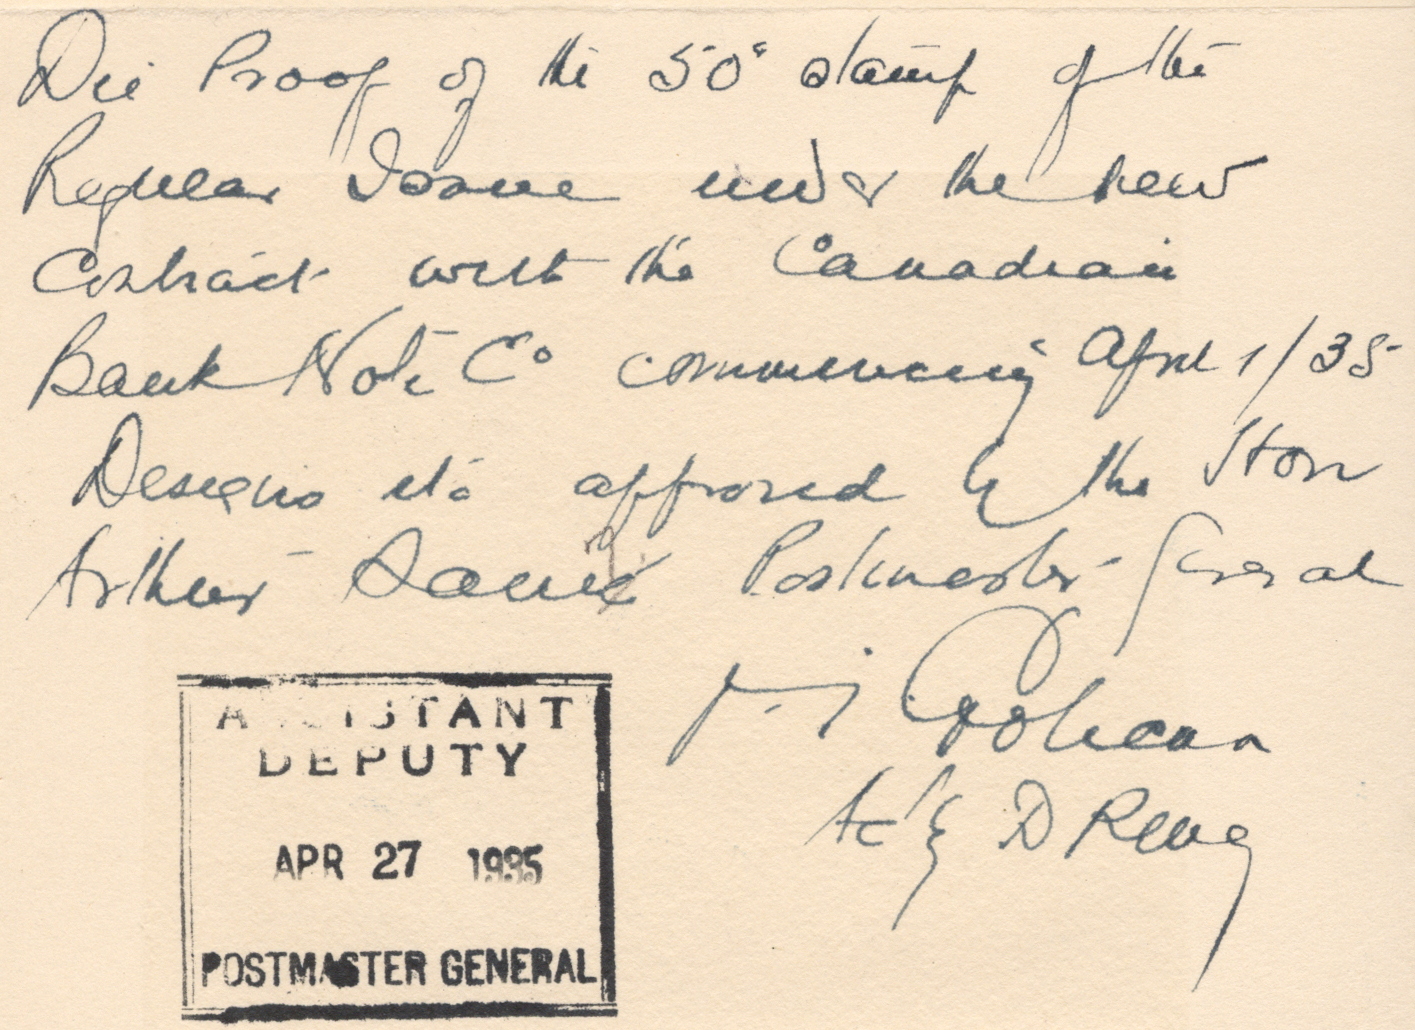 Die Proof of the 50c stamp of the
Regular Issue under the new
Contract with the Canadian
Bank Note Co commencing April 1/35
Designs etc approved by the Hon
Arthur Sauvé Postmaster General
Coolican
Ac'g D
ASSISTANT
DEPUTY
APR 27 1935
POSTMASTER GENERAL